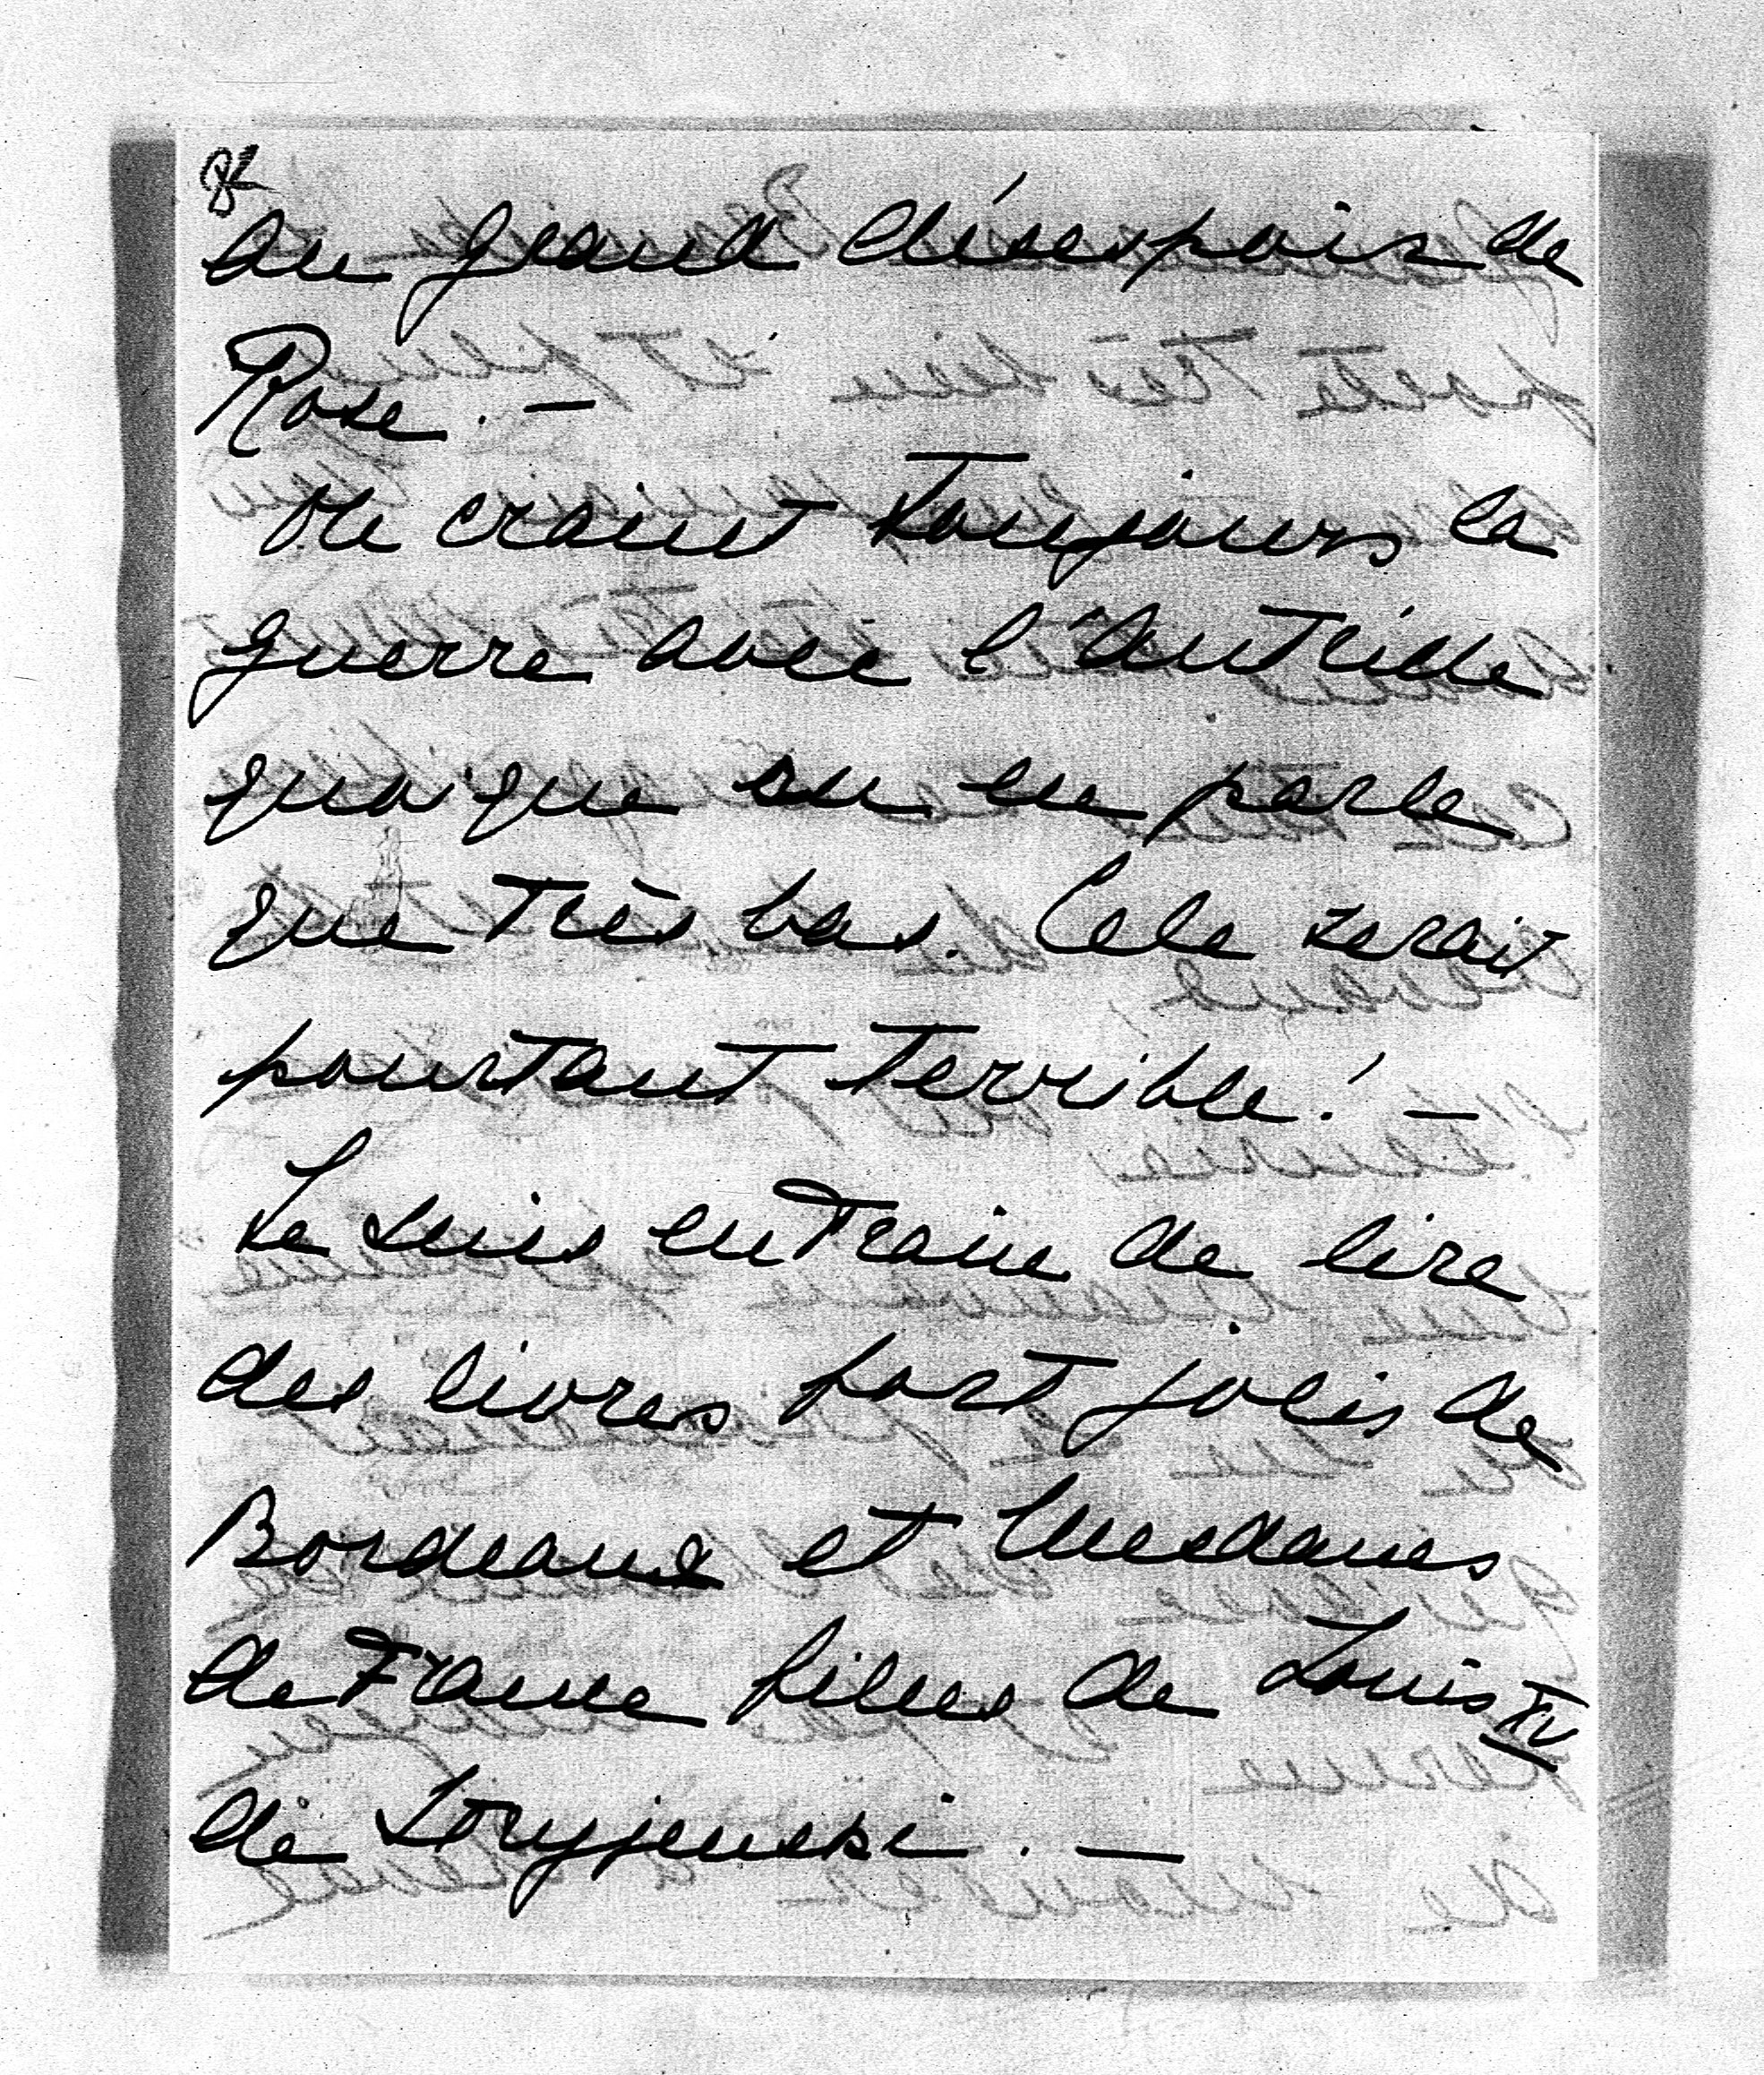 au grand désespoir de
Rose. —
On craint toujours la
guerre avec l'Autriche
quoique on en parle
que très bas. Cela serait
pourtant terrible! —
Je suis en train de lire
des livres fort jolis de
Bordeaux et Mesdames
de France filles de Louis XV
de Stryjenski. —